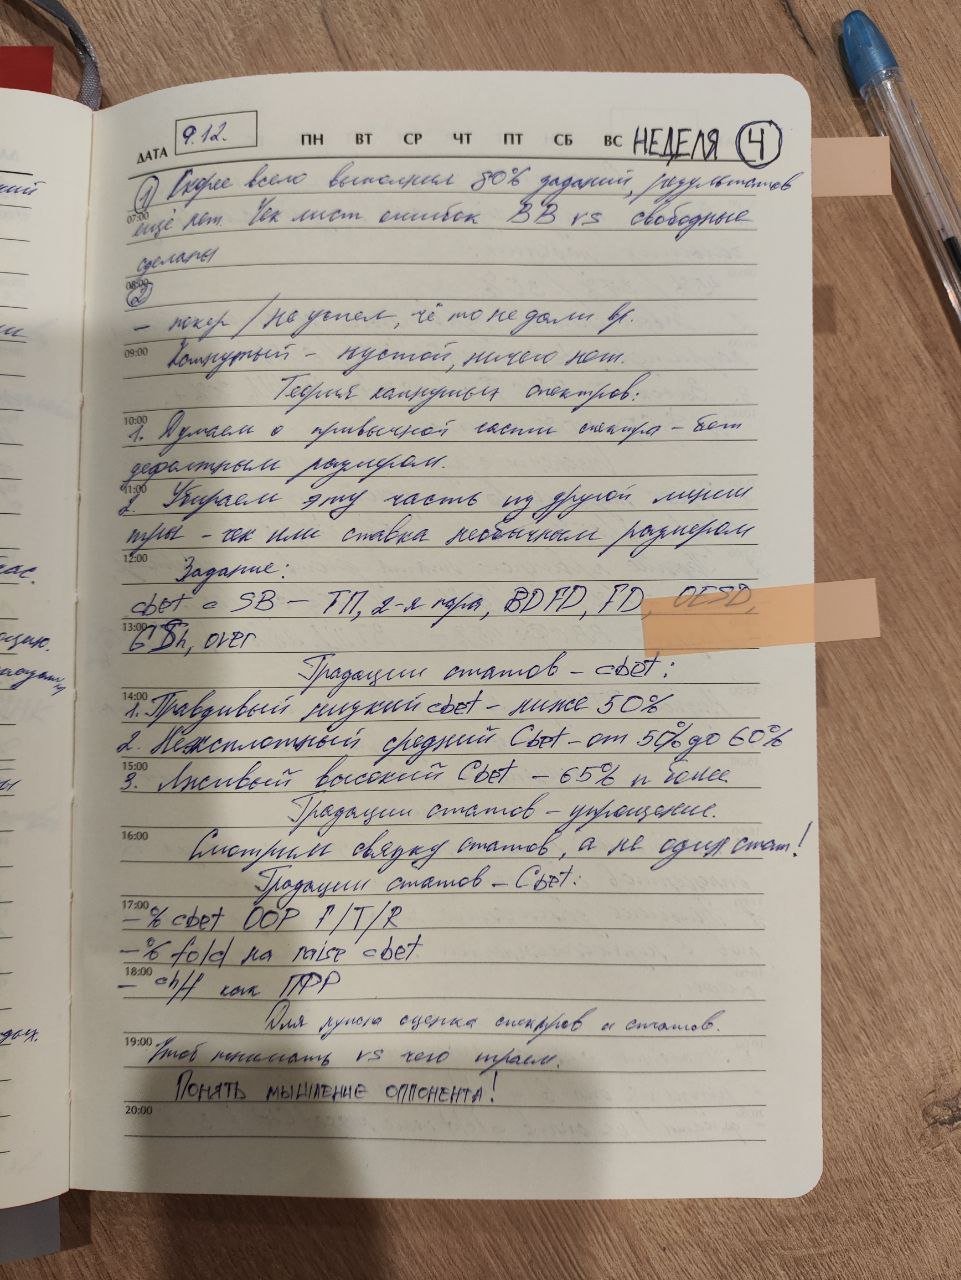 ДАТА 9.12. ПН ВТ СР ЧТ ПТ СБ ВС НЕДЕЛЯ 4
1 Скорее всего выполнил 80% заданий, результатов
07:00
ещё нет. Чек лист ошибок BB vs свободные
сделаны
08:00
2
– покер / не успел, чё то не дали вр.
09:00
– пустой, ничего нет.
Теория спектров:
10:00
1. Думаем о привычной части спектра – бет
дефолтным размером.
11:00
2. Убираем эту часть из другой линии
– чек или ставка необычным размером
12:00
Задание:
cbet с SB – ТП, 2-я пара, BDFD, FD, OESD,
13:00
GSh, over
Градации статов – cbet:
14:00
1. Правдивый низкий cbet – ниже 50%
2. средний Cbet – от 50% до 60%
15:00
3. Лживый высокий Cbet – 65% и более
Градации статов – упрощение.
16:00
Смотрим связку статов, а не один стат!
Градации статов – Cbet:
17:00
– % cbet OOP F/T/R
– % fold на raise cbet
18:00
– ch/f как ПФР
Для оценка спектров и статов.
19:00
Чтоб понимать vs чего играем.
ПОНЯТЬ МЫШЛЕНИЕ ОППОНЕНТА!
20:00